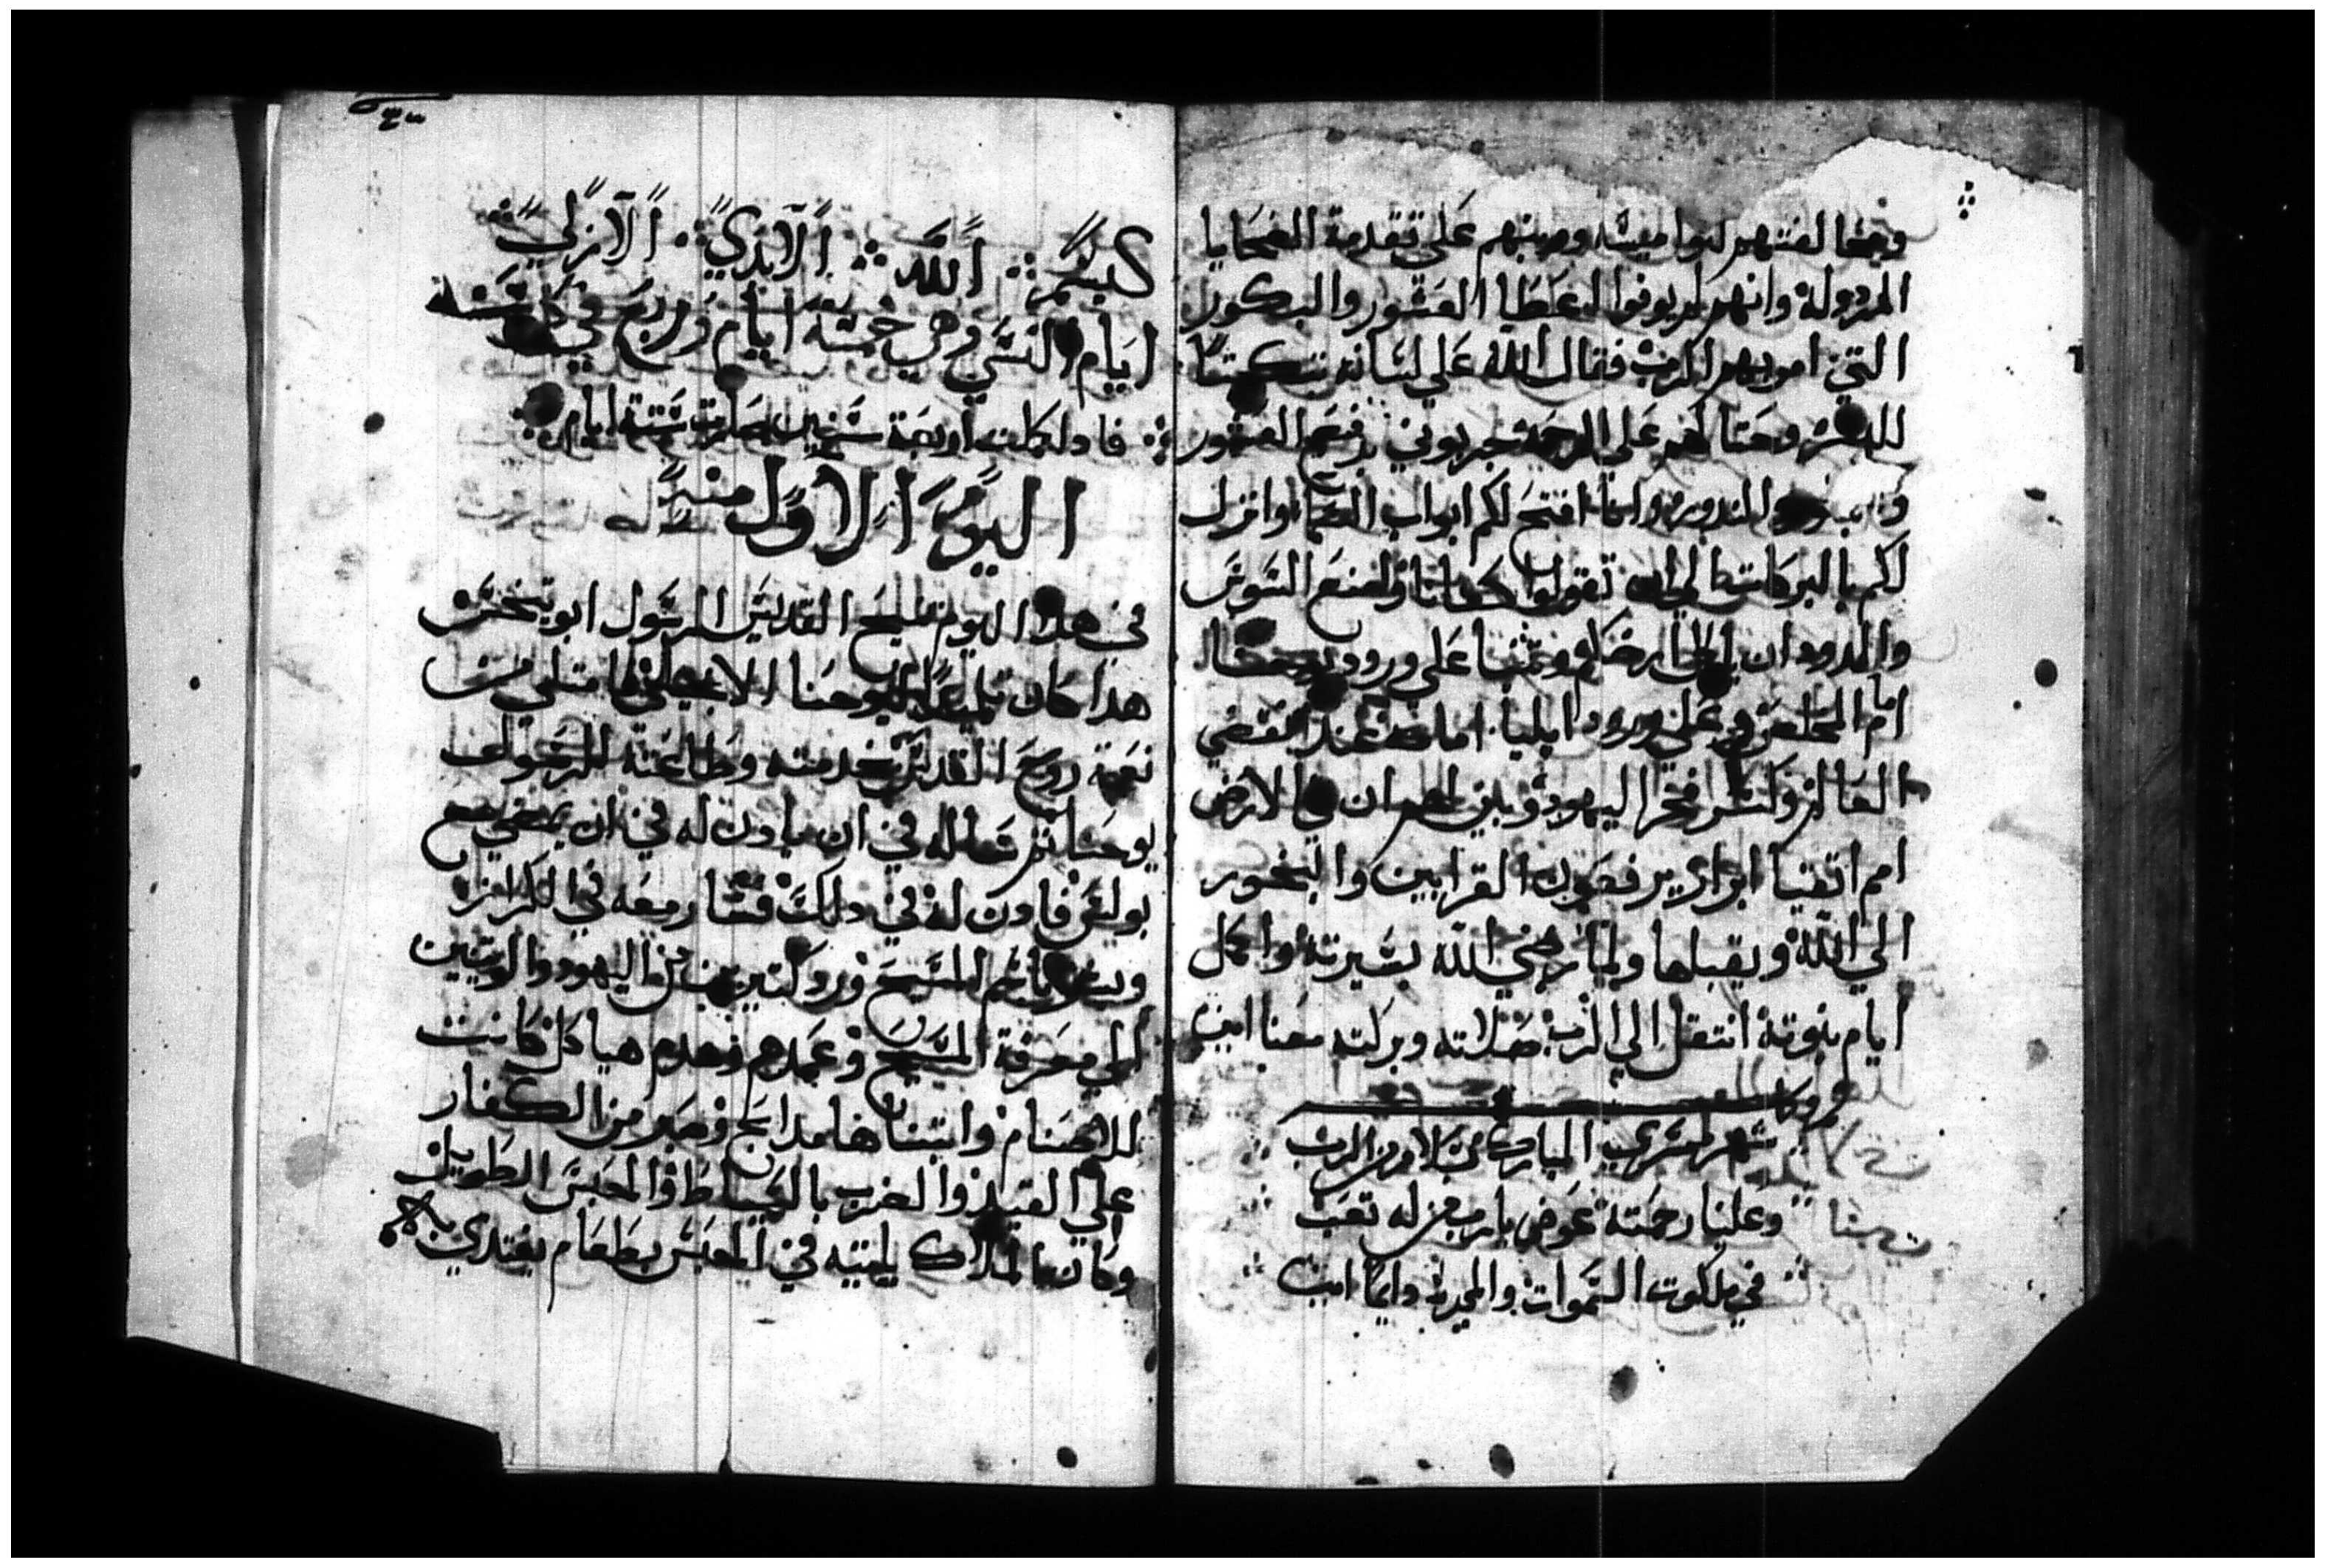 ومخالفتهم لنواميسه ومبنهم علي تقدمة الضحايا
المردولة وانهم لم يوفوا اعطا العشور والبكور
التي امر بهم الرب فقال الله علي لسانه
علي الرحمة جربوني برفع العشور
والندور وانا افتح لكم ابواب السما وانزل
لكم بالبركات الي ان تقولوا كفانا وامنع السوس
والدود ان ارضكم وتنبا علي ورود يوحنا
امام المخلص وعلي ورود ايليا امامه عند تقضي
العالم وكسر فخر اليهود وبين لهم ان في الارض
امم اتقيا ابرار يرفعون القرابين والبخور
الي الله ويقبلها ولما ارضي الله بسيرته واكمل
ايام نبوته انتقل الي الرب صلاته وبركته معنا امين
شهر مسري المبارك بسلام من الرب
وعلينا رحمته عوض يارب من له تعب
في ملكوت السموات والمجد دايما امين
بسم الله الابدي الازلي
ايام النسي وهي خمسة ايام وربع في كل سنه
فاذا كملت اربعة سنين صارت ستة ايام
اليوم الاول منه
في هذا اليوم تنيح القديس الرسول ابوتيخس
هدا كان تلميدا ليوحنا الانجيلي فامتلي من
نعمة روح القدس بخدمته وطاعته للرسول
يوحنا ثم سأله في ان يادن له في ان يمضي مع
بولس فادن له في دلك فسار معه في الكرازه
وبشر باسم المسيح ورد كتيرين من اليهود والوتنيين
الي معرفة المسيح وعمدهم وهدم هياكل كانت
للاصنام وابتناها مدابح وصبر من الكفار
علي القيد والضرب بالسياط والحبس الطويل
وكان ملاك ياتيه في الحبس بطعام يغتدي به